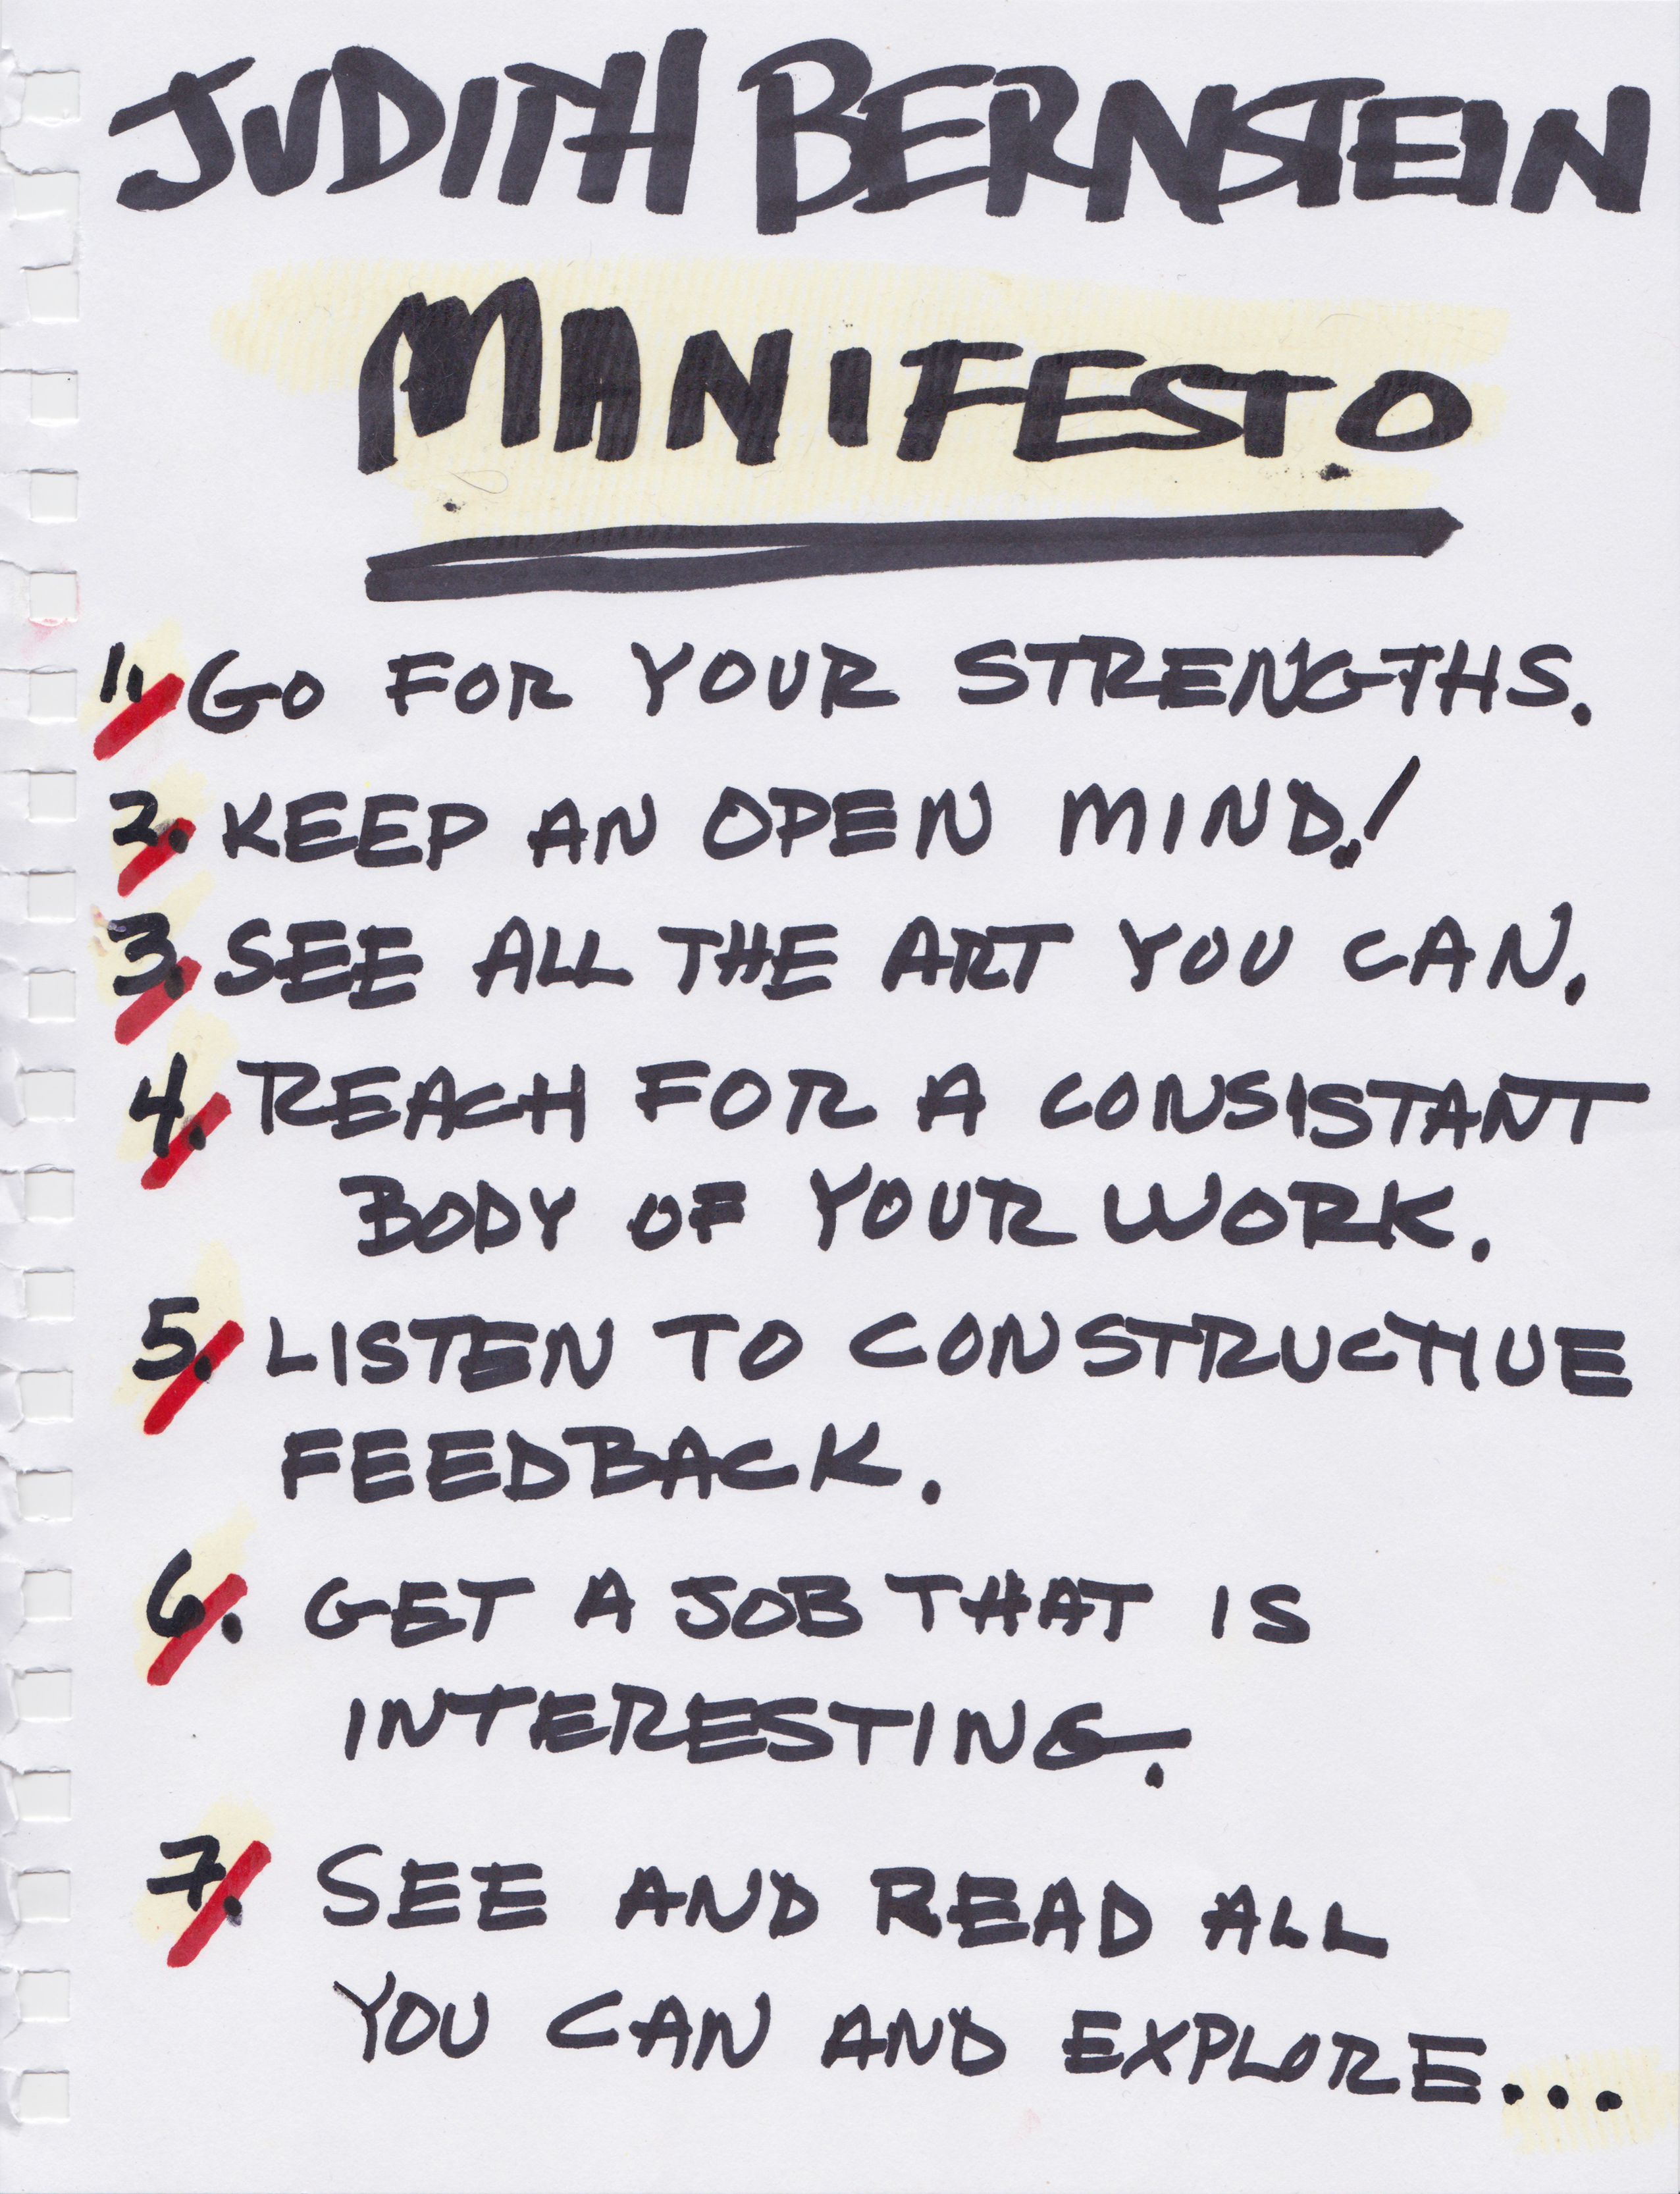 JUDITH BERNSTEIN
MANIFESTO
1. GO FOR YOUR STRENGTHS.
2. KEEP AN OPEN MIND!
3. SEE ALL THE ART YOU CAN.
4. REACH FOR A CONSISTANT
BODY OF YOUR WORK.
5. LISTEN TO CONSTRUCTIVE
FEEDBACK.
6. GET A JOB THAT IS
INTERESTING.
7. SEE AND READ ALL
YOU CAN AND EXPLORE...